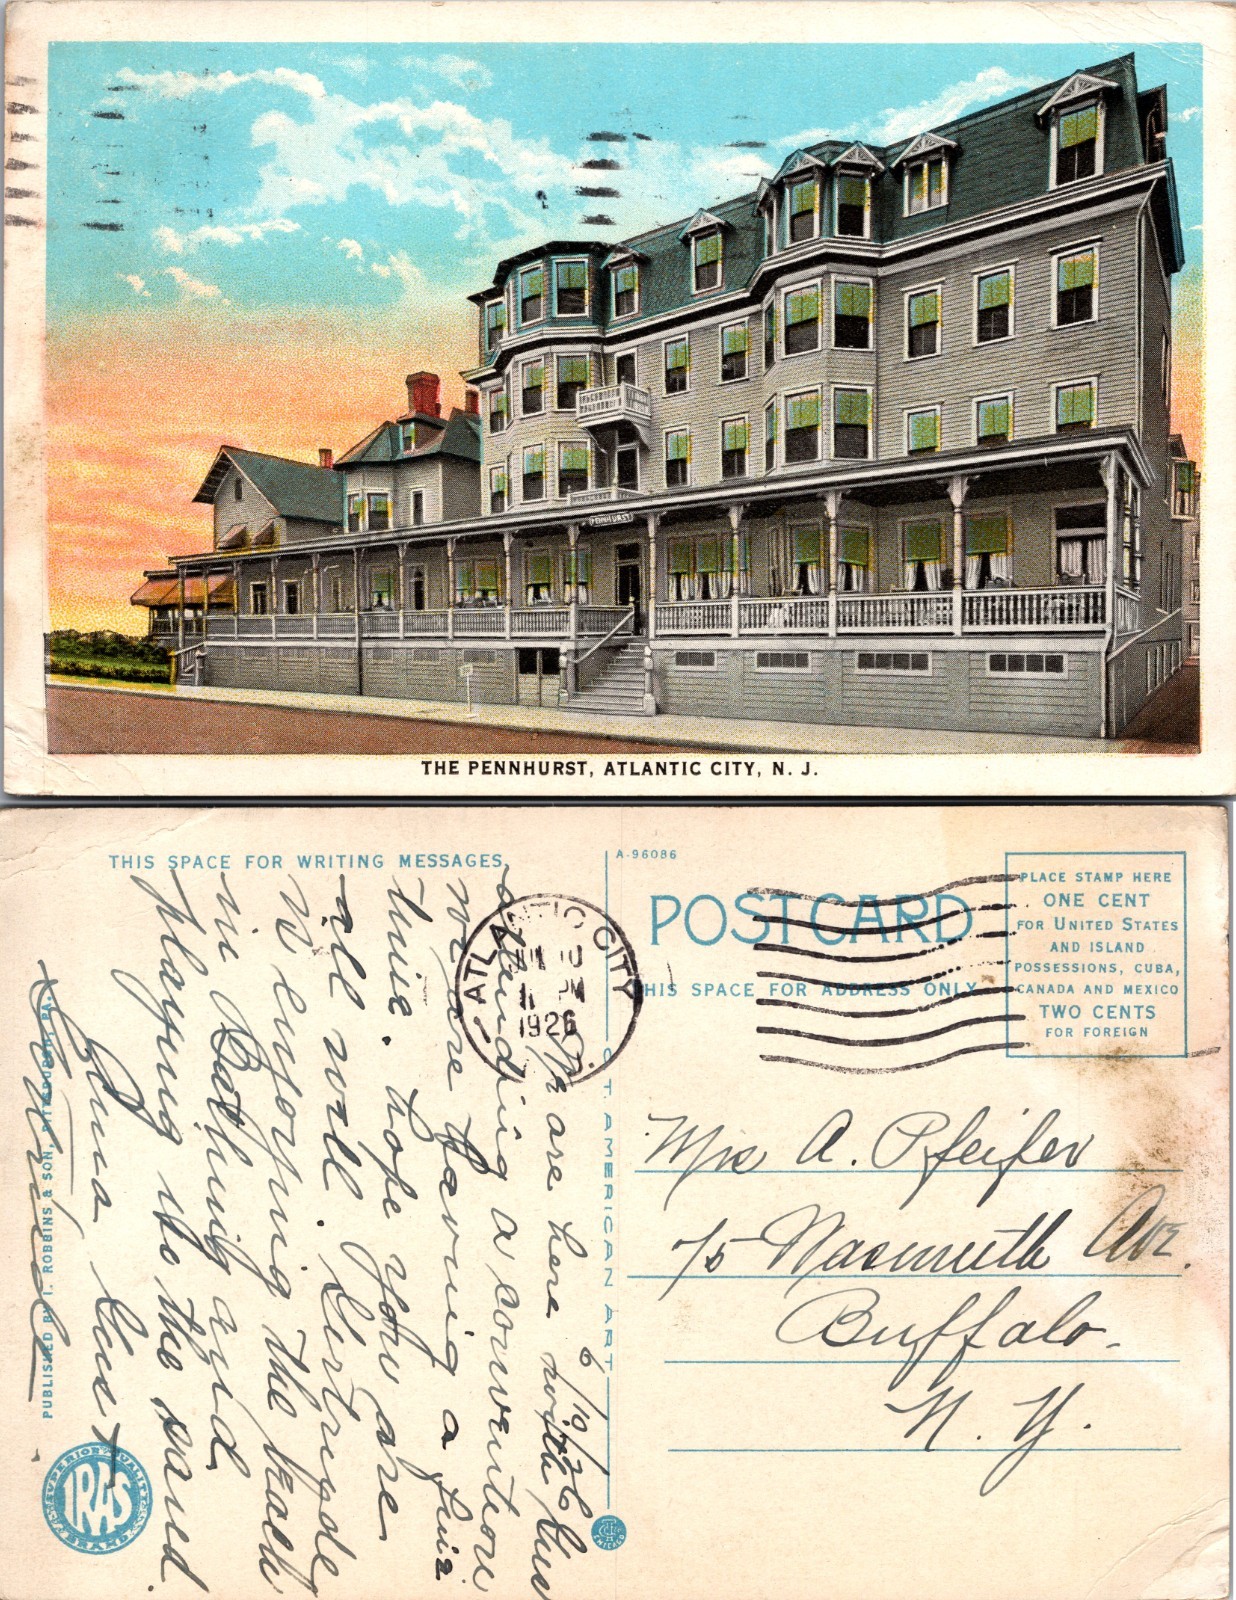 PENNHURST
THE PENNHURST, ATLANTIC CITY, N. J.
THIS SPACE FOR WRITING MESSAGES
A-96086
POST CARD
THIS SPACE FOR ADDRESS ONLY
PLACE STAMP HERE
ONE CENT
FOR UNITED STATES
AND ISLAND
POSSESSIONS, CUBA,
CANADA AND MEXICO
TWO CENTS
FOR FOREIGN
ATLANTIC CITY
JUN 10
11 PM
1926
N.J.
6/10/26
We are here with Gus
attending a convention
we are having a fine
time. hope you are
all well. Gertrude
is enjoying the beach
in Bathing and
playing in the sand.
Emma Gus &
Gertrude
Mrs A. Pfeifer
75 Nasmuth Ave.
Buffalo.
N. Y.
C. T. AMERICAN ART
PUBLISHED BY I. ROBBINS & SON, PITTSBURGH, PA.
SUPERIOR QUALITY
IRAS
BRAND
CHICAGO